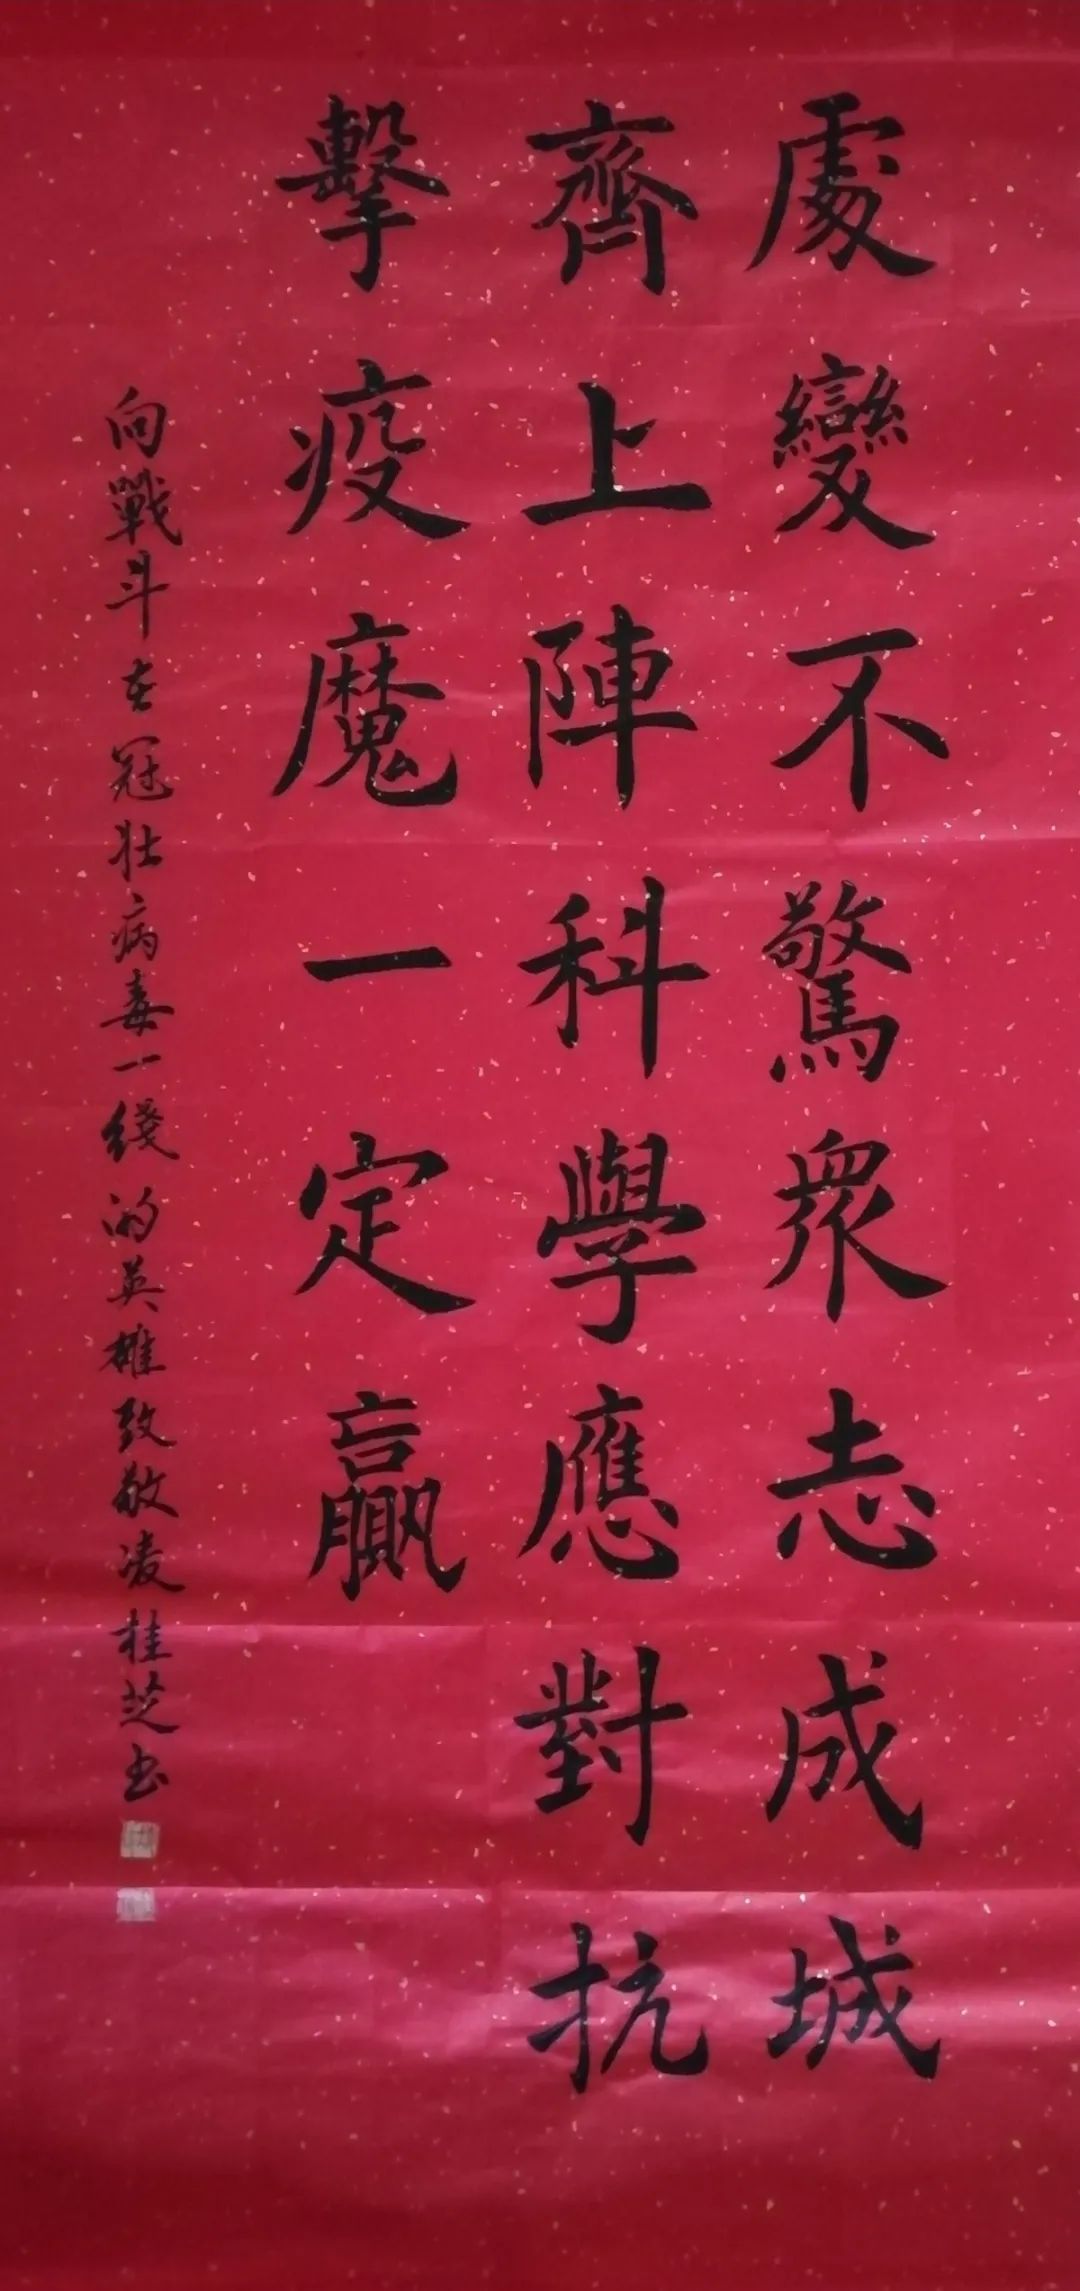 處變不驚眾志成城
齊上陣科學應對抗
擊疫魔一定贏
向戰斗在冠壯病毒一綫的英雄致敬凌桂芝书